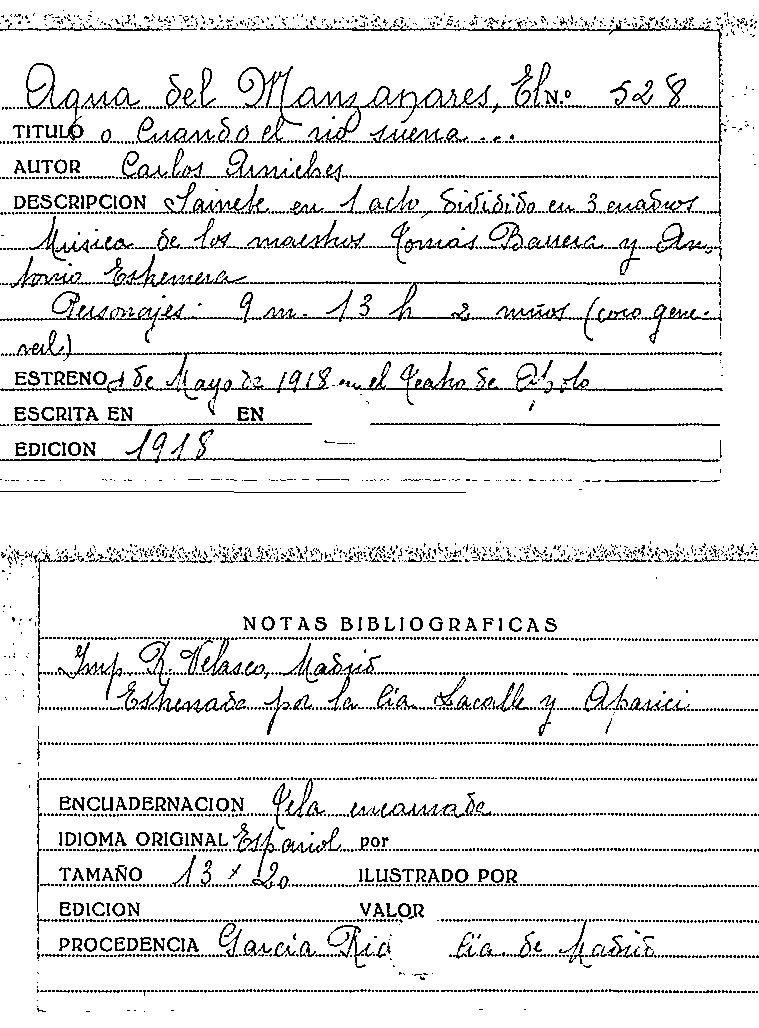 Agua del Manzanares, El N.º 528
TITULO o Cuando el rio suena...
AUTOR Carlos Arniches
DESCRIPCION Sainete en 1 acto, dividido en 3 cuadros
Música de los maestros Tomás Barrera y An-
tonio Estremera
Personajes: 9 m. 13 h 2 niños (coro gene-
ral)
ESTRENO 1 de Mayo de 1918 en el Teatro de Apolo
ESCRITA EN EN
EDICION 1918
NOTAS BIBLIOGRAFICAS
Imp R. Velasco, Madrid
Estrenada por la Cia. Lacalle y Aparici
ENCUADERNACION Tela encarnada
IDIOMA ORIGINAL Español por
TAMAÑO 13 x 20 ILUSTRADO POR
EDICION VALOR
PROCEDENCIA Garcia Cia. de Madrid